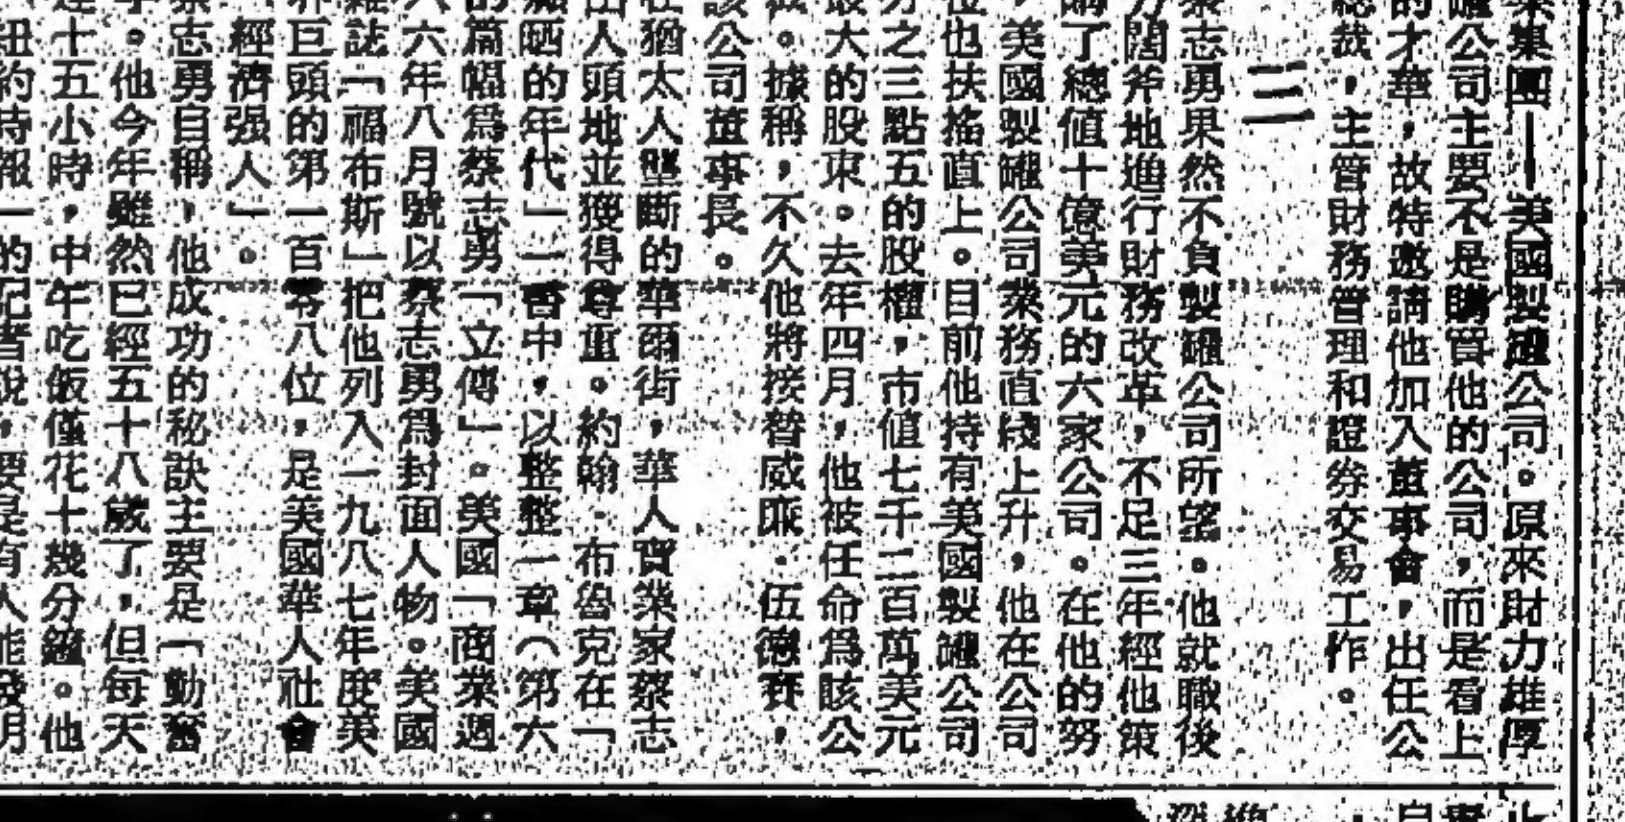 業集團——美國製罐公司。原來財力雄厚
罐公司主要不是購買他的公司，而是看上
的才華，故特邀請他加入董事會，出任公
總裁，主管財務管理和證券交易工作。
三
蔡志勇果然不負製罐公司所望。他就職後
刀闊斧地進行財務改革，不足三年經他策
購了總值十億美元的六家公司。在他的努
，美國製罐公司業務直綫上升，他在公司
位也扶搖直上。目前他持有美國製罐公司
分之三點五的股權，市值七千二百萬美元
最大的股東。去年四月，他被任命爲該公
裁。據稱，不久他將接替威廉·伍德賽，
該公司董事長。
在猶太人壟斷的華爾街，華人實業家蔡志
出人頭地並獲得尊重。約翰·布魯克在「
瘋晒的年代」一書中，以整整一章（第六
的篇幅爲蔡志勇「立傳」。美國「商業週
八六年八月號以蔡志勇爲封面人物。美國
雜誌「福布斯」把他列入一九八七年度美
界巨頭的第一百零八位，是美國華人社會
「經濟强人」。
蔡志勇自稱，他成功的秘訣主要是「勤奮
字。他今年雖然已經五十八歲了，但每天
達十五小時，中午吃飯僅花十幾分鐘。他
紐約時報」的記者說，要是有人能發明